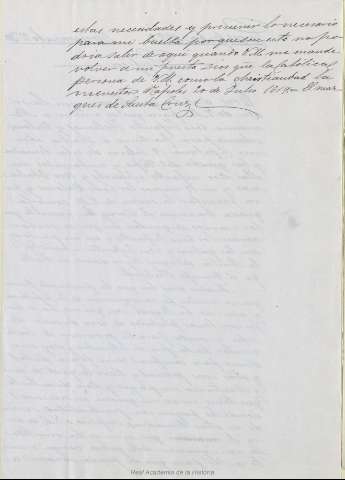 estas necesidades y prevenir lo necesario
para me buelta porque sin esto no po-
dria salir de aqui quando V.M. me mande
volver a mi puesto Dios que la catolica
persona de V.M. como la christiandad la
menester. Napoles 20 de Julio 1619 = El mar
ques de Santa Cruz.
Real Academia de la Historia